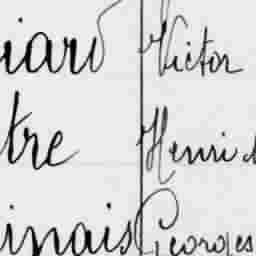 iard Victor
tre Henri
inais Georges